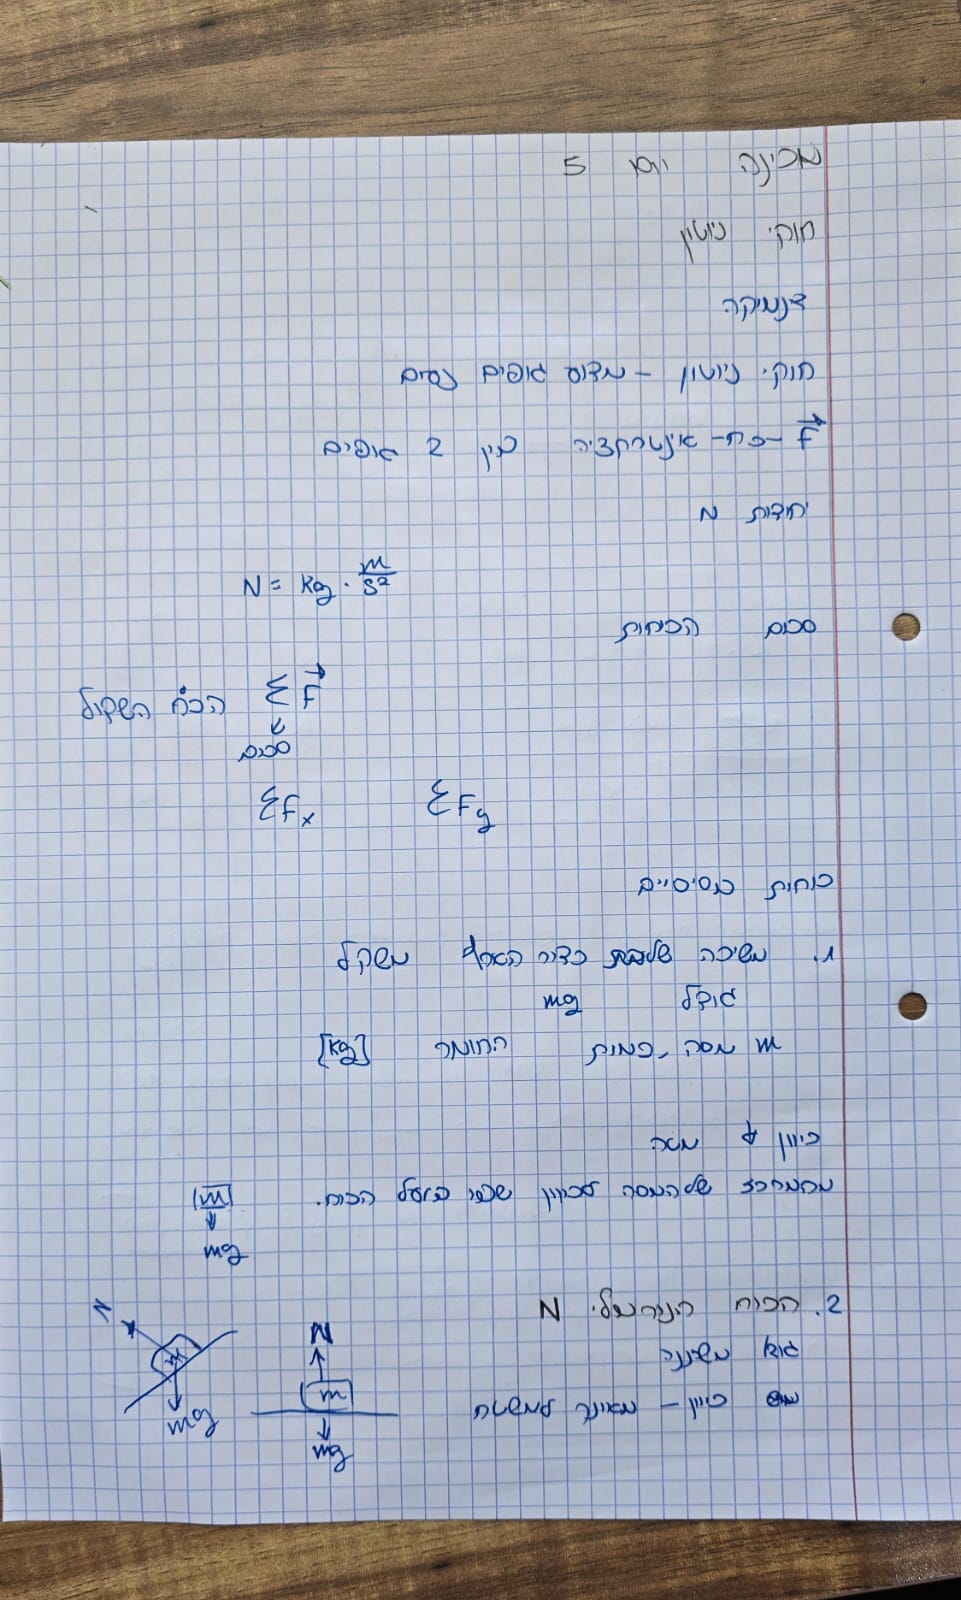 מכינה יום 5
חוקי ניוטון
דנמיקה
חוקי ניוטון - מדוע גופים נעים
F - כח - אינטרקציה בין 2 גופים
יחידות N
N = kg · m/s²
סכום הכוחות
ΣF הכח השקול
↓
סכום
ΣFx ΣFy
כוחות בסיסיים
1. משיכה של כדור הארץ משקל
גודל mg
m מסה, כמות החומר [kg]
כיוון ↓ מטה
מהמרכז של המסה לכיוון שבו פועל הכוח.
m
↓
mg
2. הכוח הנורמלי N
גודל משתנה
כיוון - מאונך למשטח
N
m
mg
N
m
mg